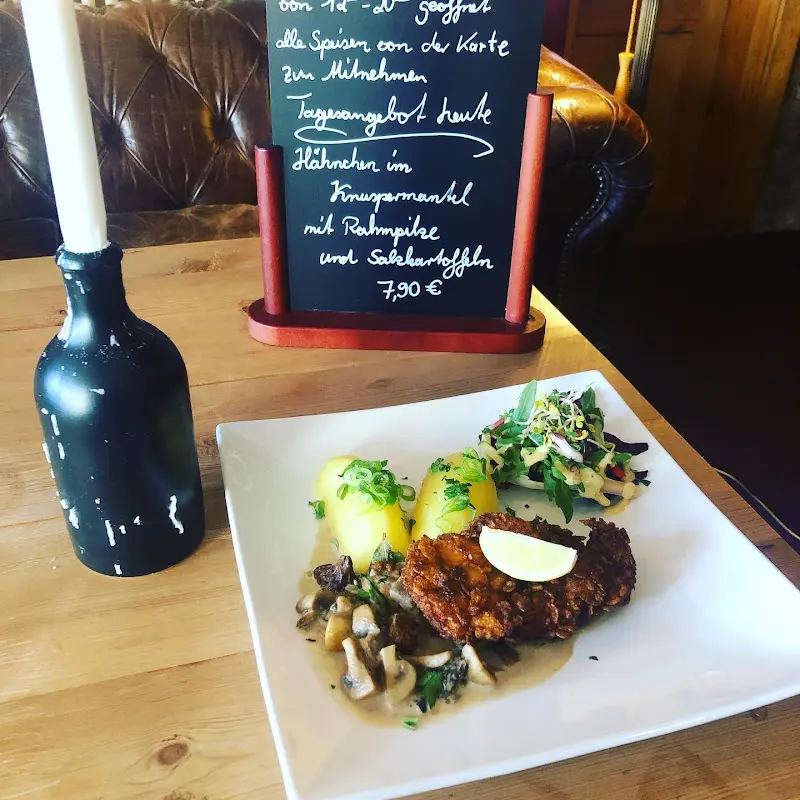 von 12⁰⁰-20⁰⁰ geöffnet
alle Speisen von der Karte
zum Mitnehmen
Tagesangebot heute
Hähnchen im
Knuspermantel
mit Rahmpilze
und Salzkartoffeln
7,90 €